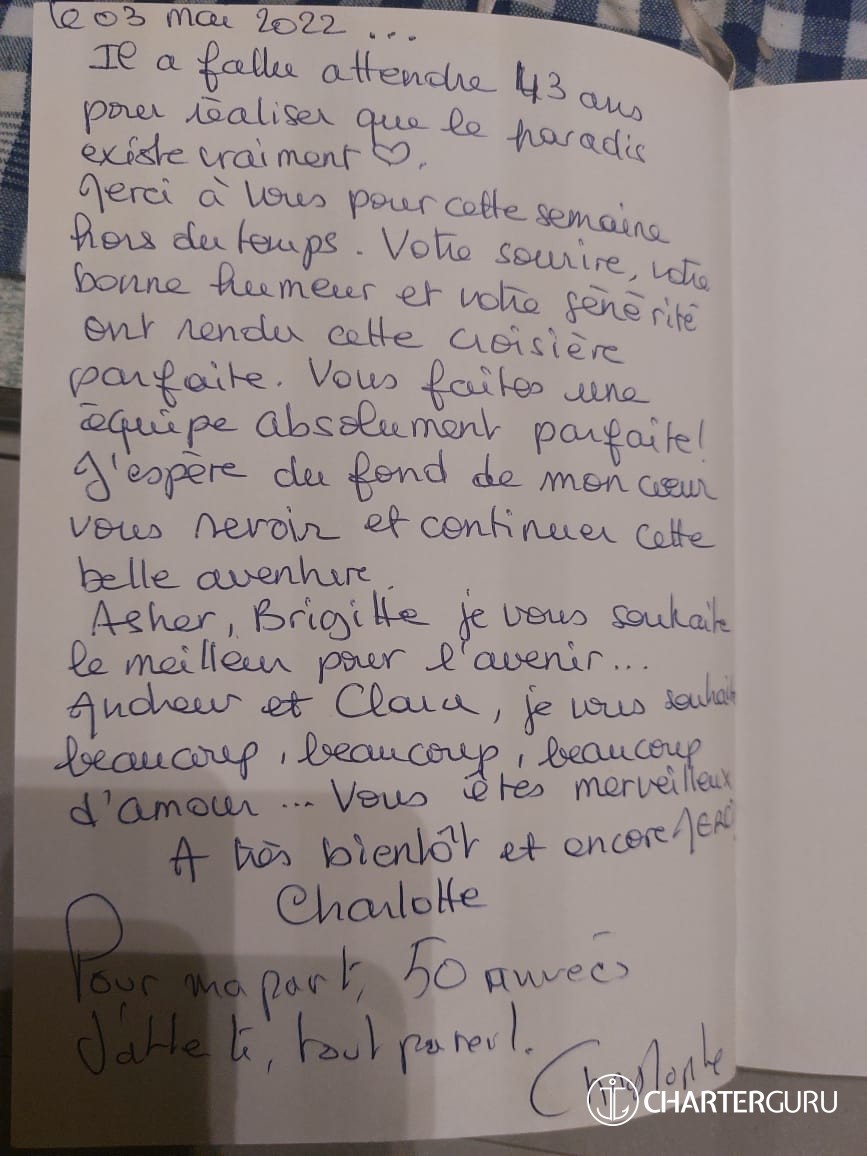 le 03 mai 2022 ...
Il a fallu attendre 43 ans
pour réaliser que le paradis
existe vraiment ♡.
Merci à vous pour cette semaine
hors du temps. Votre sourire, votre
bonne humeur et votre sénérité
ont rendu cette croisière
parfaite. Vous faites une
équipe absolument parfaite!
J'espère du fond de mon cœur
vous revoir et continuer cette
belle aventure.
Asher, Brigitte je vous souhaite
le meilleur pour l'avenir...
et Clara, je vous souhaite
beaucoup, beaucoup, beaucoup
d'amour... Vous êtes merveilleux
A très bientôt et encore MERCI
Charlotte
Pour ma part, 50 années
d'attente, tout pareil.
CHARTERGURU